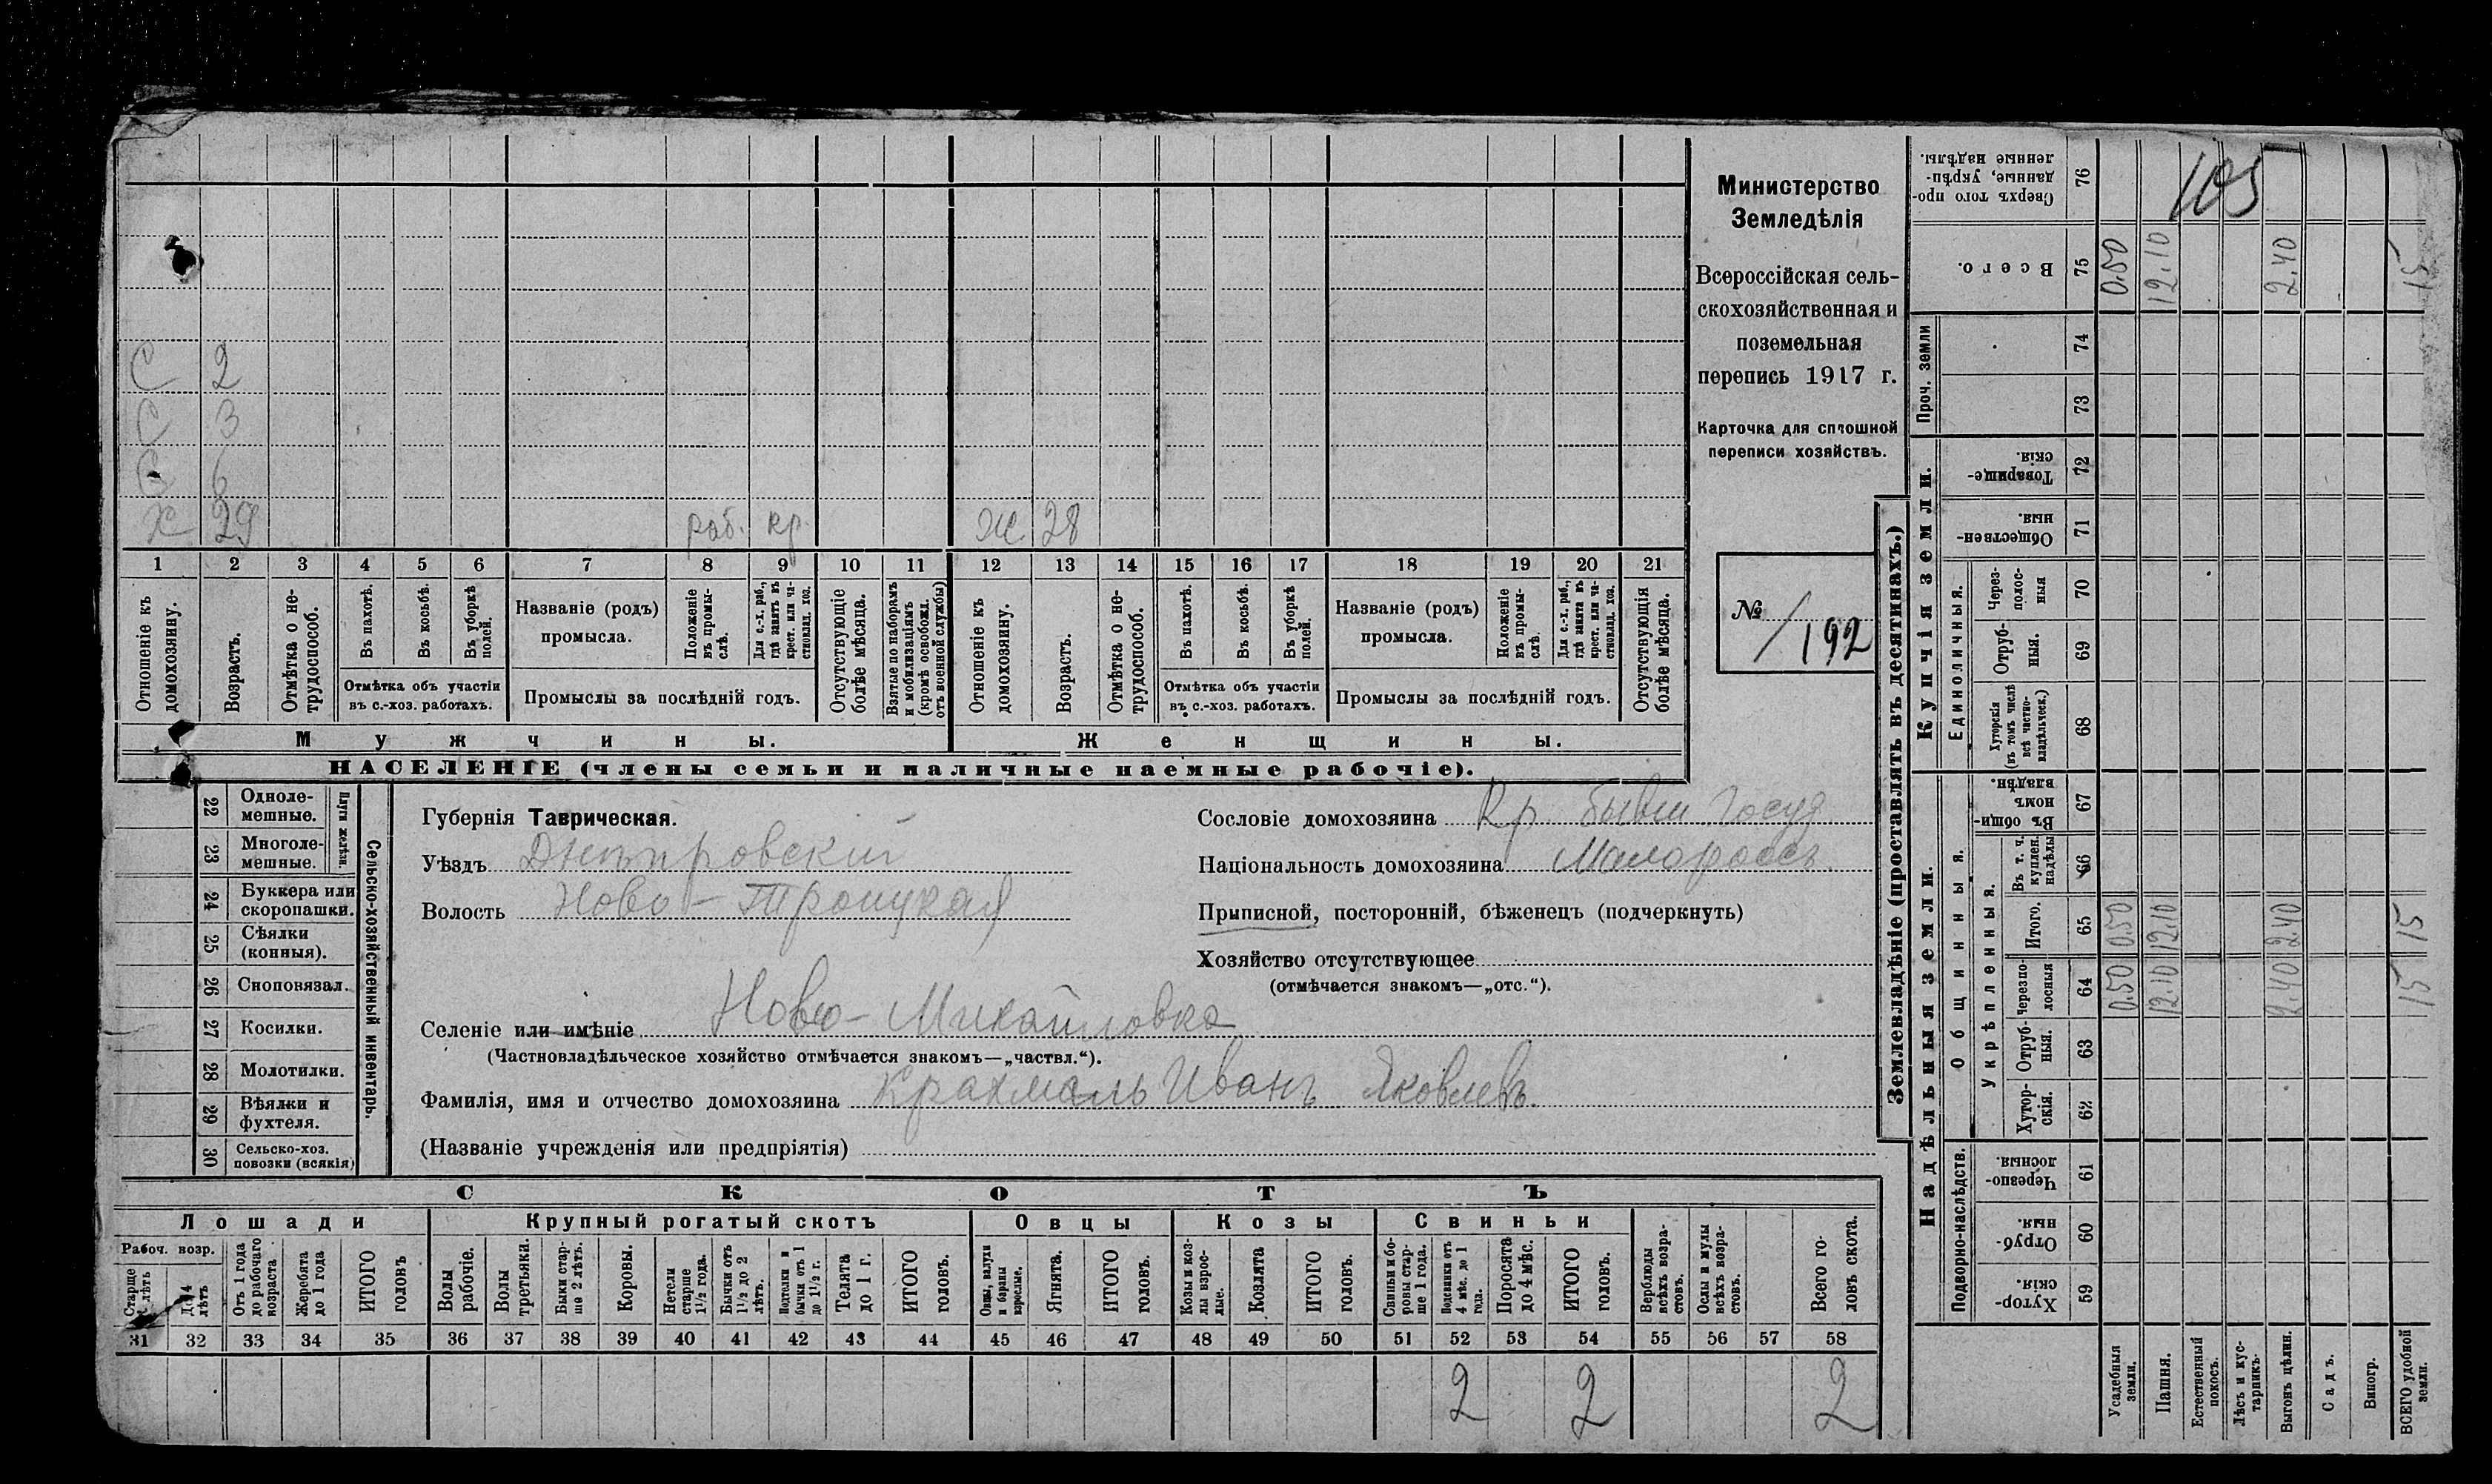 С 2
С 3
С 6
Х 29 раб. кр. Ж 28
1 2 3 4 5 6 7 8 9 10 11 12 13 14 15 16 17 18 19 20 21
Отношеніе къ домохозяину.
Возрастъ.
Отмѣтка о не-трудоспособ.
Въ пахотѣ.
Въ косьбѣ.
Въ уборкѣ полей.
Отмѣтка объ участіи въ с.-хоз. работахъ.
Названіе (родъ) промысла.
Положеніе въ промы-слѣ.
Для с.-х. раб., гдѣ занятъ въ крест. или ча-стновлад. хоз.
Промыслы за послѣдній годъ.
Отсутствующіе болѣе мѣсяца.
Взятые по наборамъ и мобилизаціямъ (кромѣ освобожд. отъ военной службы)
Отношеніе къ домохозяину.
Возрастъ.
Отмѣтка о не-трудоспособ.
Въ пахотѣ.
Въ косьбѣ.
Въ уборкѣ полей.
Отмѣтка объ участіи въ с.-хоз. работахъ.
Названіе (родъ) промысла.
Положеніе въ промы-слѣ.
Для с.-х. раб., гдѣ занята въ крест. или ча-стновлад. хоз.
Промыслы за послѣдній годъ.
Отсутствующія болѣе мѣсяца.
Мужчины. Женщины.
НАСЕЛЕНІЕ (члены семьи и наличные наемные рабочіе).
Министерство
Земледѣлія
Всероссійская сель-
скохозяйственная и
поземельная
перепись 1917 г.
Карточка для сплошной
переписи хозяйствъ.
№ /192
Сельско-хозяйственный инвентарь.
Плуги желѣзн.
22 Одноле-мешные.
23 Многоле-мешные.
24 Буккера или скоропашки.
25 Сѣялки (конныя).
26 Сноповязал.
27 Косилки.
28 Молотилки.
29 Вѣялки и фухтеля.
30 Сельско-хоз. повозки (всякія)
Губернія Таврическая.
Уѣздъ Днѣпровскій
Волость Ново-Троицкая
Сословіе домохозяина Кр. бывш Госуд
Національность домохозяина Малороссъ.
Приписной, посторонній, бѣженецъ (подчеркнуть)
Хозяйство отсутствующее
(отмѣчается знакомъ—„отс.“).
Селеніе или имѣніе Ново-Михайловка
(Частновладѣльческое хозяйство отмѣчается знакомъ—„частвл.“).
Фамилія, имя и отчество домохозяина Крахмаль Иванъ Яковлевъ
(Названіе учрежденія или предпріятія)
СКОТЪ
Лошади Крупный рогатый скотъ Овцы Козы Свиньи
Рабоч. возр.
Старше 4 лѣтъ
До 4 лѣтъ
Отъ 1 года до рабочаго возраста
Жеребята до 1 года
ИТОГО головъ
Волы рабочіе.
Волы третьяки.
Быки стар-ше 2 лѣтъ.
Коровы.
Нетели старше 1½ года.
Бычки отъ 1½ до 2 лѣтъ.
Подтелки и бычки отъ 1 до 1½ г.
Телята до 1 г.
ИТОГО головъ.
Овцы, валухи и бараны взрослые.
Ягнята.
ИТОГО головъ.
Козы и коз-лы взрос-лые.
Козлята
ИТОГО головъ.
Свиньи и бо-ровы стар-ше 1 года.
Подсвинки отъ 4 мѣс. до 1 года.
Поросята до 4 мѣс.
ИТОГО головъ.
Верблюды всѣхъ возра-стовъ.
Ослы и мулы всѣхъ возра-стовъ.
Всего го-ловъ скота.
31 32 33 34 35 36 37 38 39 40 41 42 43 44 45 46 47 48 49 50 51 52 53 54 55 56 57 58
2 2 2
Землевладѣніе (проставлять въ десятинахъ.)
105
76 Сверхъ того про-данные, укрѣп-ленные надѣлы.
75 Всего. 0.50 12.10 2.40 15
Купчія земли.
Проч. земли
74
73
72 Товарище-скія.
71 Обществен-ныя
Единоличныя.
70 Через-полос-ныя
69 Отруб-ныя.
68 Хуторскія (въ томъ числѣ всѣ частно-владѣльческ.)
Надѣльныя земли.
Общинныя.
67 Въ общин-номъ владѣн.
Укрѣпленныя.
66 Въ т. ч. куплен. надѣлы
65 Итого. 0.50 12.10 2.40 15
64 Черезпо-лосныя 0.50 12.10 2.40 15
63 Отруб-ныя.
62 Хутор-скія.
Подворно-наслѣдств.
61 Черезпо-лосныя.
60 Отруб-ныя.
59 Хутор-скія.
Усадебныя земли.
Пашня.
Естественный покосъ.
Лѣсъ и кус-тарникъ.
Выгонъ цѣлин.
Садъ.
Виногр.
ВСЕГО удобной земли.